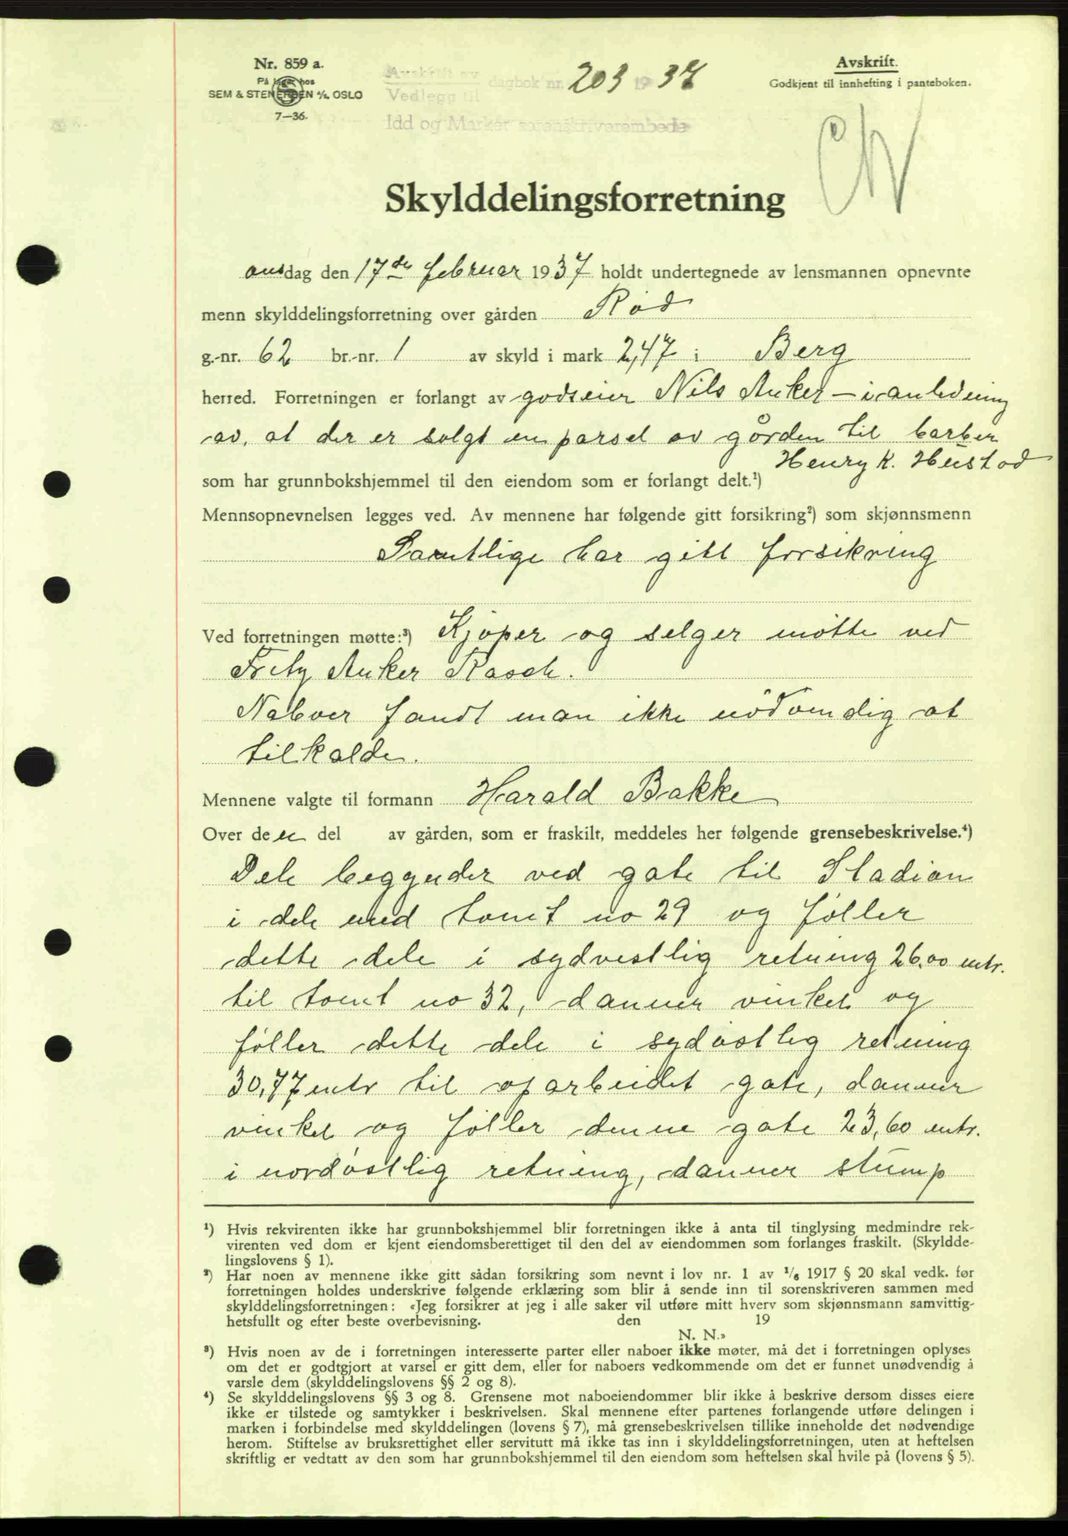 Nr. 859 a.
På lager hos
SEM & STENERSEN A/S, OSLO
7—36.
Avskrift av
Vedlegg til
dagbok nr. 203 1937
Idd og Marker sorenskriverembede
Avskrift.
Godkjent til innhefting i panteboken.
Skylddelingsforretning
onsdag den 17de februar 1937 holdt undertegnede av lensmannen opnevnte
menn skylddelingsforretning over gården Rød
g.-nr. 62 br.-nr. 1 av skyld i mark 2,47 i Berg
herred. Forretningen er forlangt av godseier Nils Anker - i anledning
av, at der er solgt en parsel av gården til barber
Henry K. Hustad
som har grunnbokshjemmel til den eiendom som er forlangt delt.¹)
Mennsopnevnelsen legges ved. Av mennene har følgende gitt forsikring²) som skjønnsmenn
Samtlige har gitt forsikring
Ved forretningen møtte:³) Kjøper og selger møtte ved
Fritz Anker Rasch.
Naboer fandt man ikke nødvendig at
tilkalde.
Mennene valgte til formann Harald Bakke
Over den del av gården, som er fraskilt, meddeles her følgende grensebeskrivelse.⁴)
Dele begynder ved gate til Stadion
i dele med tomt no 29 og føller
dette dele i sydvestlig retning 26,00 mtr.
til tomt no 32, danner vinkel og
føller dette dele i sydøstlig retning
30,77 mtr til oparbeidet gate, danner
vinkel og føller denne gate 23,60 mtr.
i nordøstlig retning, danner stump
¹) Hvis rekvirenten ikke har grunnbokshjemmel blir forretningen ikke å anta til tinglysing medmindre rek-
virenten ved dom er kjent eiendomsberettiget til den del av eiendommen som forlanges fraskilt. (Skyldde-
lingslovens § 1).
²) Har noen av mennene ikke gitt sådan forsikring som nevnt i lov nr. 1 av 1/6 1917 § 20 skal vedk. før
forretningen holdes underskrive følgende erklæring som blir å sende inn til sorenskriveren sammen med
skylddelingsforretningen: «Jeg forsikrer at jeg i alle saker vil utføre mitt hverv som skjønnsmann samvittig-
hetsfullt og efter beste overbevisning. den 19
N. N.»
³) Hvis noen av de i forretningen interesserte parter eller naboer ikke møter, må det i forretningen oplyses
om det er godtgjort at varsel er gitt dem, eller for naboers vedkommende om det er funnet unødvendig å
varsle dem (skylddelingslovens §§ 2 og 8).
⁴) Se skylddelingslovens §§ 3 og 8. Grensene mot naboeiendommer blir ikke å beskrive dersom disses eiere
ikke er tilstede og samtykker i beskrivelsen. Skal mennene efter partenes forlangende utføre delingen i
marken i forbindelse med skylddelingen (lovens § 7), må grensebeskrivelsen tillike inneholde det nødvendige
herom. Stiftelse av bruksrettighet eller servitutt må ikke tas inn i skylddelingsforretningen, uten at heftelsen
skriftlig er vedtatt av den som har grunnbokshjemmel til den eiendom som heftelsen skal hvile på (lovens § 5).